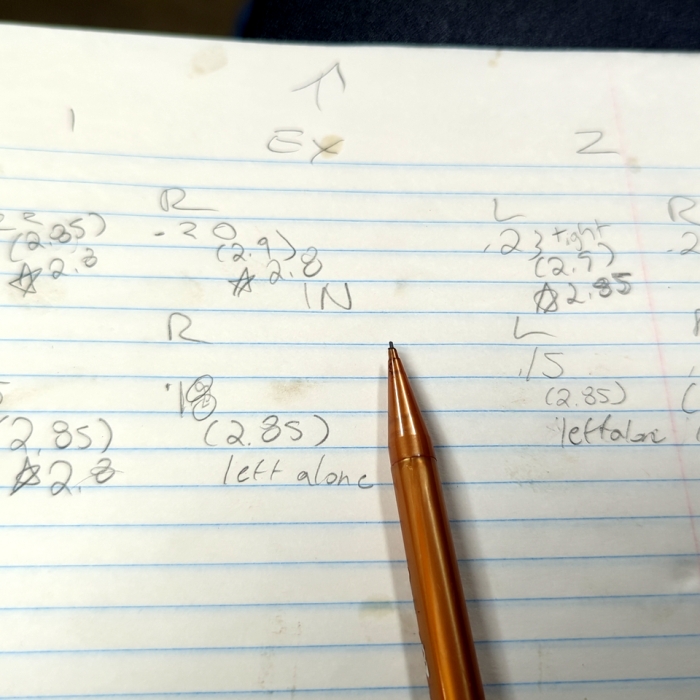 ↑
1 Ex 2
R L R
(2.85) .20 .23 tight .2
☆2.8 (2.9) (2.9)
☆2.8 ☆2.85
IN
R L
.18 .15
(2.85) (2.85) (2.85)
☆2.8 left alone left alone